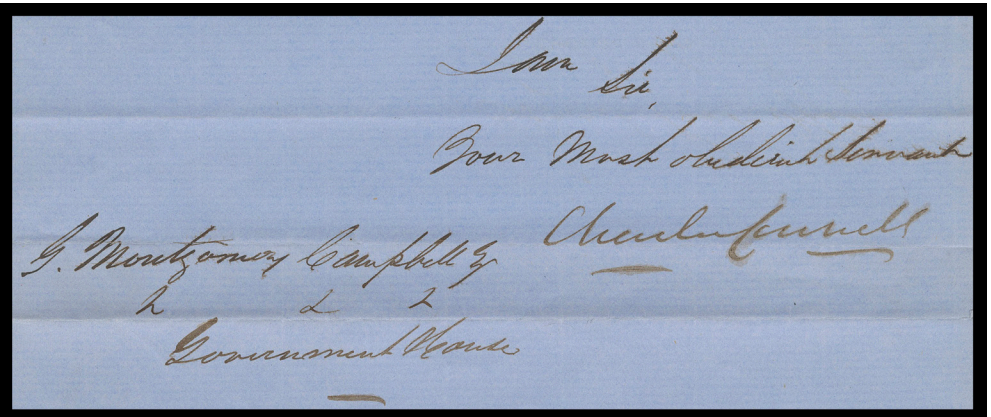 I am
Sir,
Your Most obedient Servant
Charles Connell
G. Montgomery Campbell Esq
&c &c &c
Government House